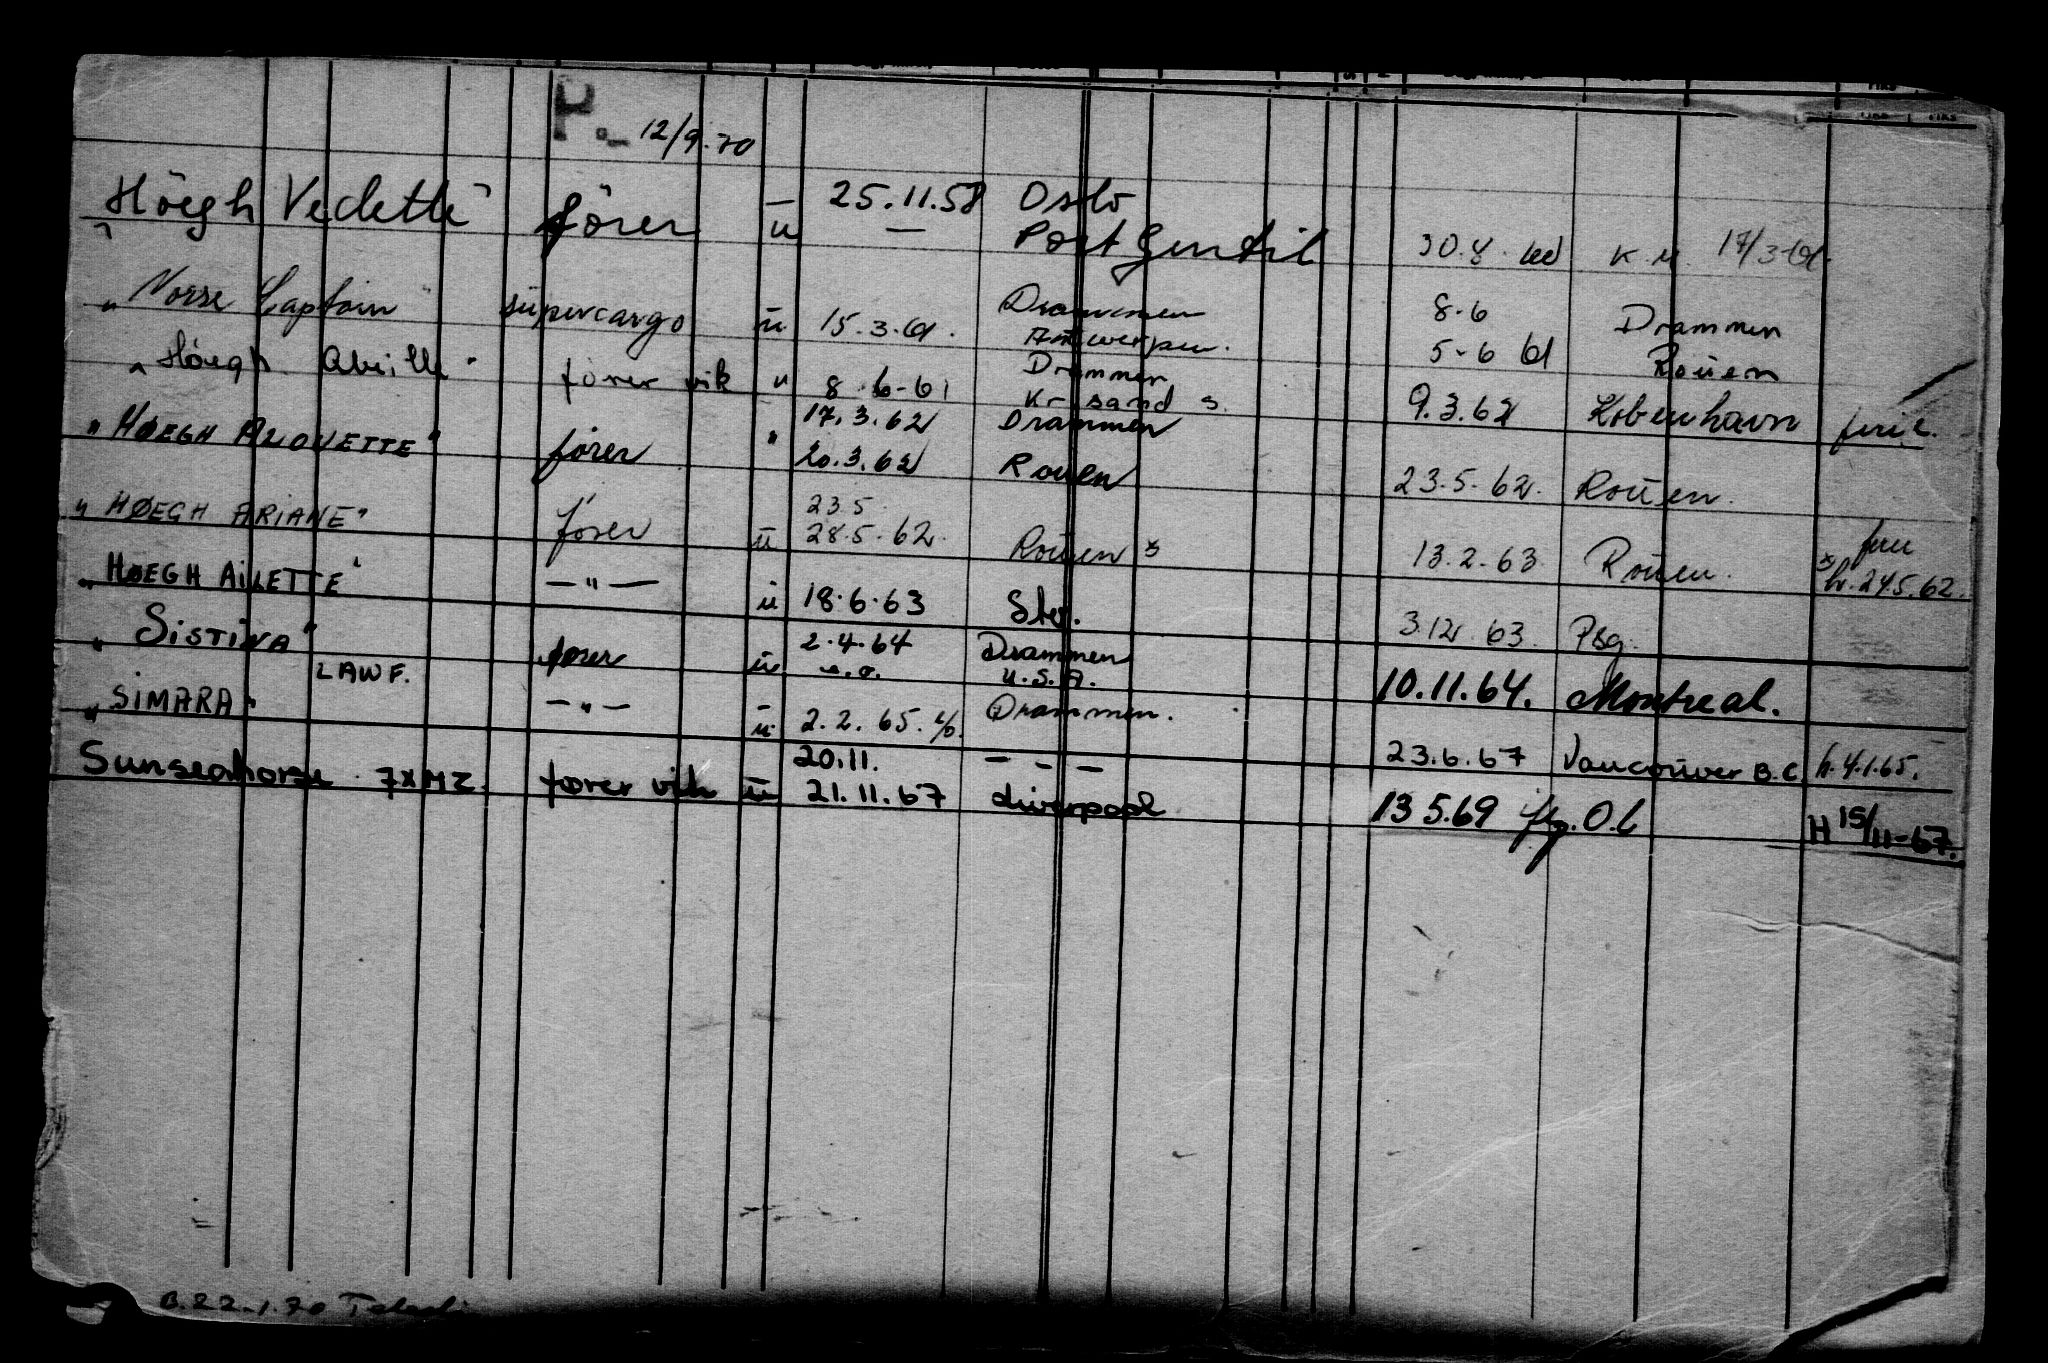 P.- 12/9.70
Höegh Vedette" förer - 25.11.58 Oslo
" u — Port Gentil 30.8. 60 K.M. 17/3-61.
" Norse Captain " supercargo u 15.3.61. Drammen 8.6 Drammen
Antwerpen. 5-6 61 Rouen
" Höegh Abeille" förer vik " 8.6-61 Drammen
Kr.sand S. 9.3.62 København ferie.
" HØEGH ALOUETTE" fører " 17.3.62 Drammen
20.3.62 Rouen 23.5.62. Rouen.
" HØEGH ARIANE" fører u 23.5.
28.5.62. Rouen * 13.2.63. Rouen. * h.24.5.62.
" HØEGH AILETTE" —"— u 18.6.63 3.12.63. Psg.
" SISTINA" fører u 2.4.64 Drammen
LAWF. u.s. U.S.A. 10.11.64. Montreal.
" SIMARA" —"— u 2.2.65. Drammen. 23.6.67 Vancouver B.C. h.4.1.65.
Sunseahorse 7XMZ. fører vik u 20.11. — — —
21.11.67 Liverpool 13 5.69 H 15/11-67.
B.22.1.70